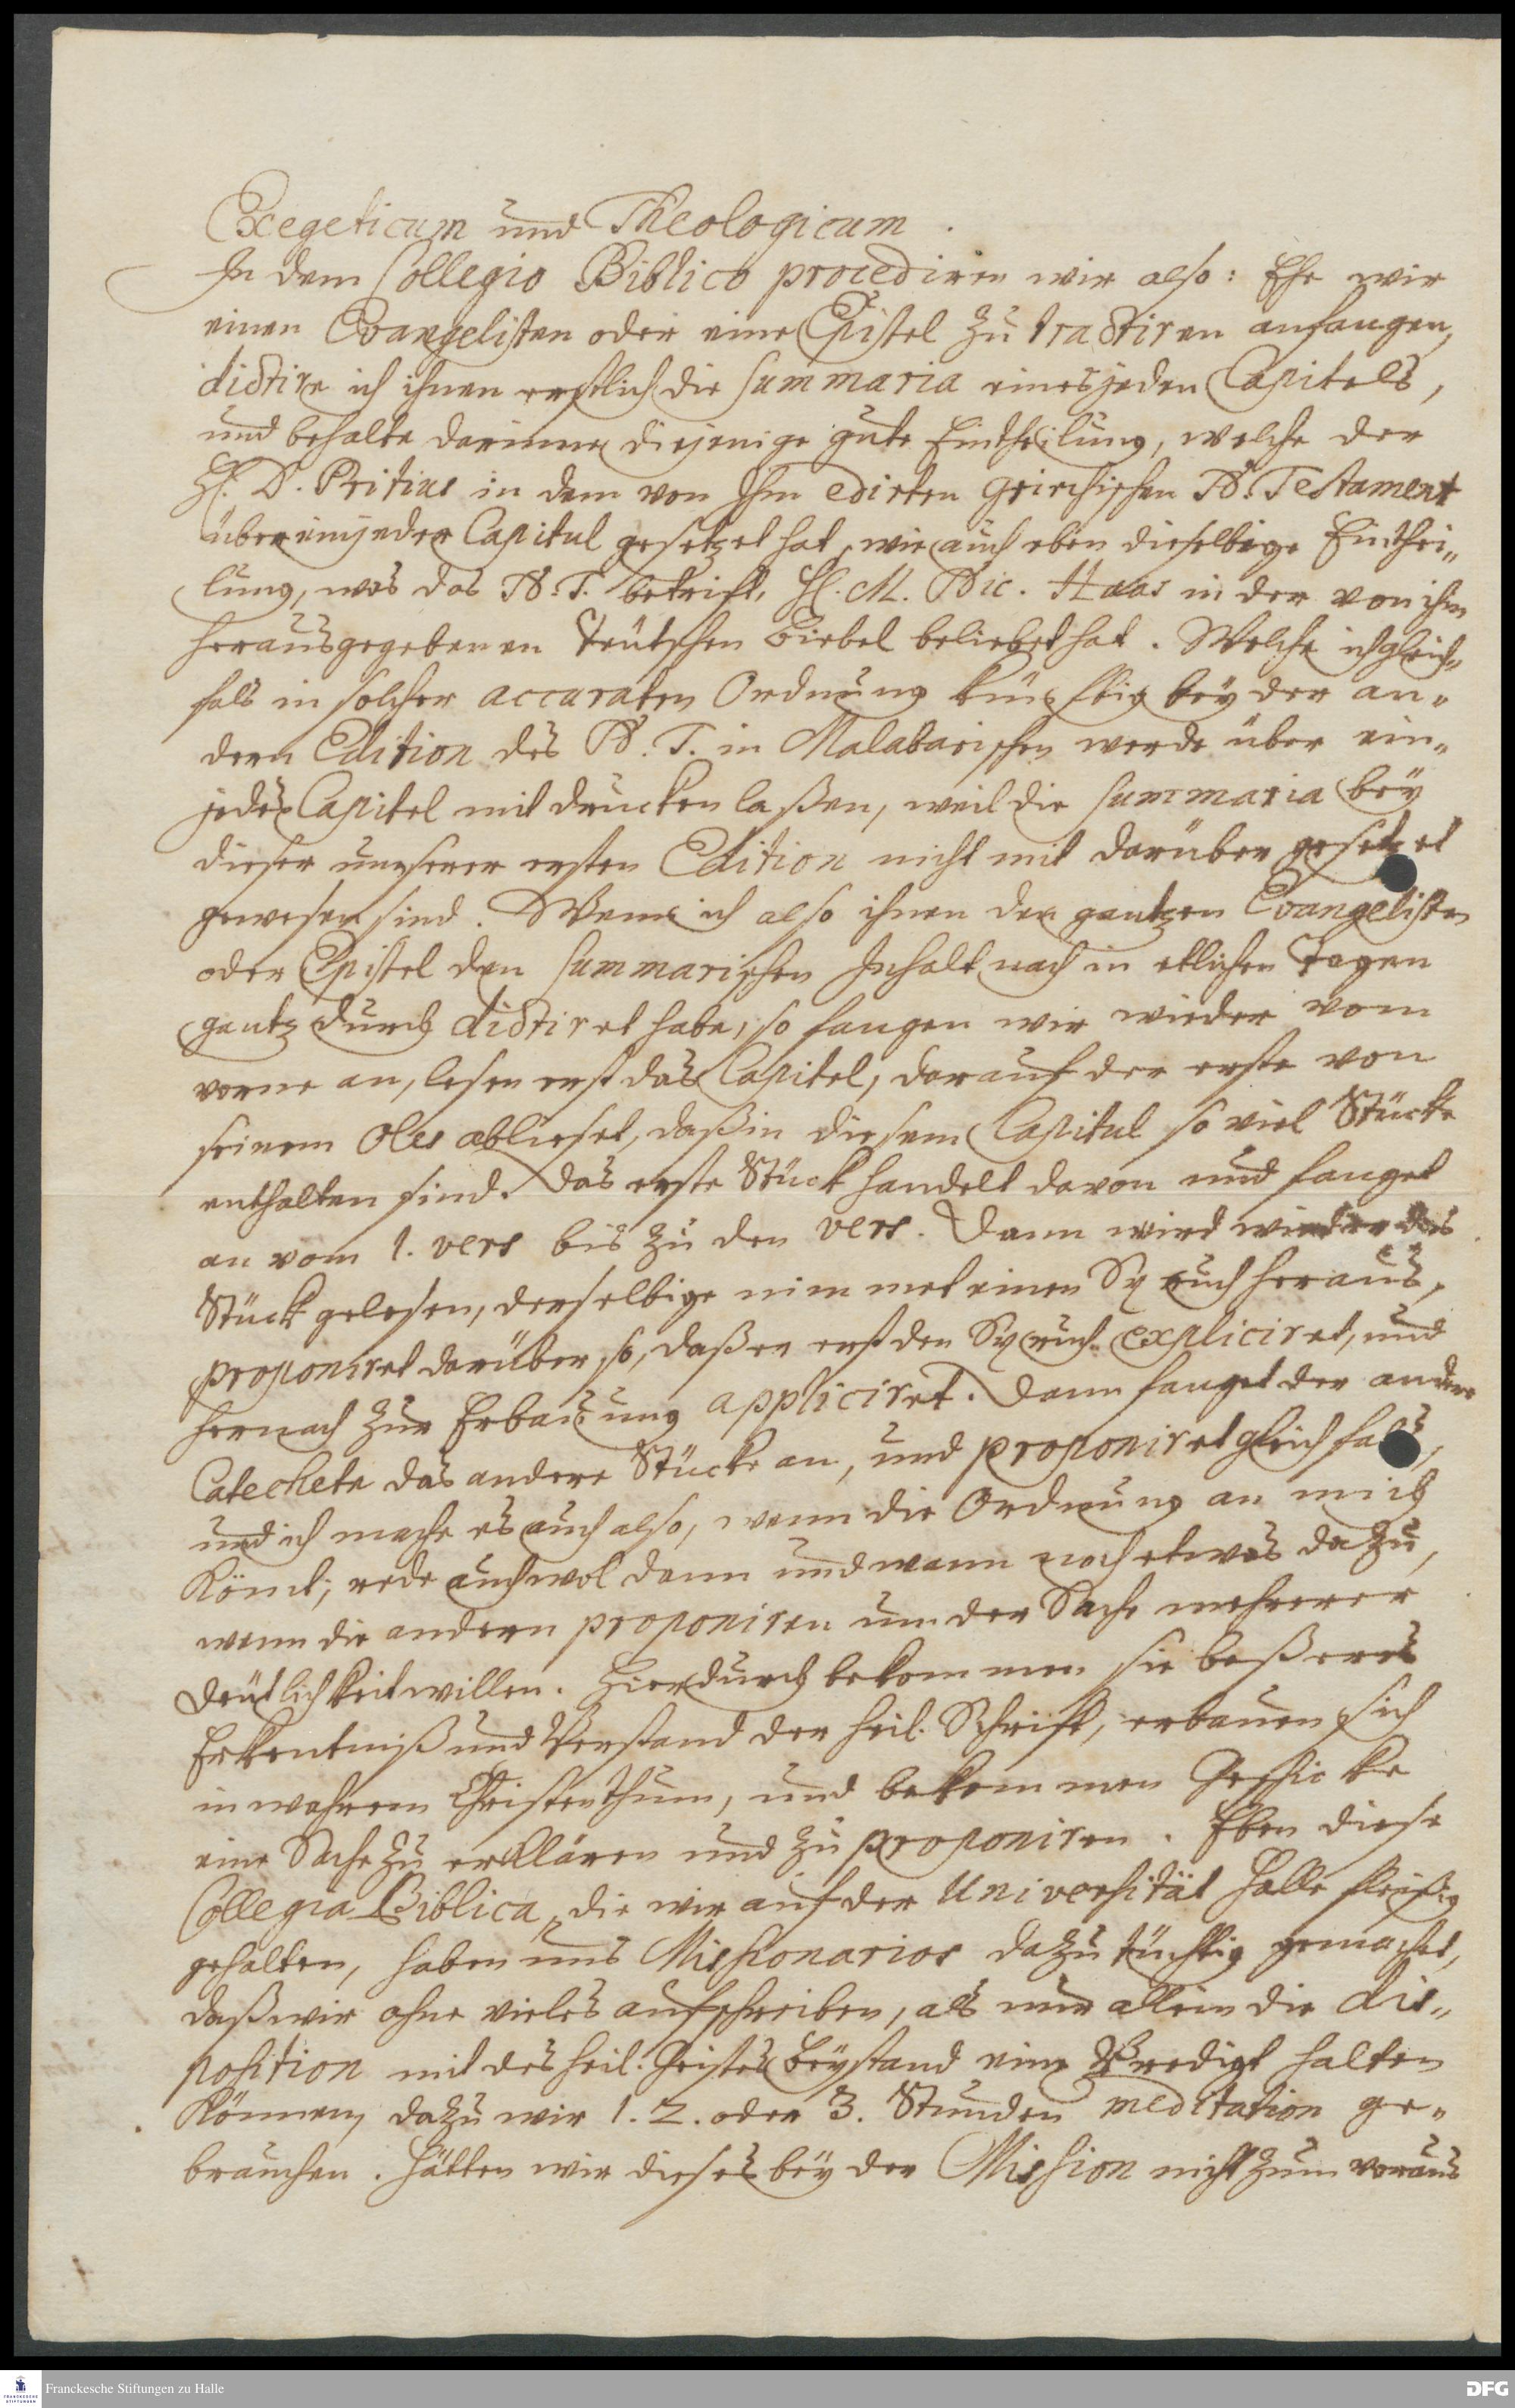 Exegeticum und Theologicum.
In dem Collegio Biblico procediren wir also: Ehe wir
einen Evangelisten oder eine Epistel zu tractiren anfangen,
dictire ich ihnen erstlich die summaria eines jeden Capitels,
und behalte darinne diejenige gute Eintheilung, welche der
H. D. Pritius in dem von Ihm edirten Griechischen N. Testament
über ein jedes Capitul gesetzet hat, wie auch eben dieselbige Einthei„
lung, was das N. T. betrift, H. M. Nic. Haas in der von ihm
herausgegebenen Teutschen Biebel beliebet hat. Welche ich gleich„
fals in solcher accuraten Ordnung künfftig bey der an„
dern Edition des N. T. in Malabarischen werde über ein„
jedes Capitel mit drucken laßen, weil die summaria bey
dieser unserer ersten Edition nicht mit darüber gesetzet
gewesen sind. Wenn ich also ihnen den gantzen Evangelisten
oder Epistel den summarischen Inhalt nach in etlichen Tagen
gantz durch dictiret habe, so fangen wir wieder vom
vorne an, lesen erst das Capitel, darauf der erste von
seinem Oles ablieset, daß in diesem Capitul so viel Stücke
enthalten sind. Das erste Stück handelt davon und fanget
an vom 1. vers bis zu den vers. Dann wird wieder das
Stück gelesen, derselbige nimmet einen Spruch heraus,
proponiret darüber so, daß er erst den Spruch expliciret, und
hernach zur Erbauung appliciret. Dann fanget der andere
Catechete das andere Stücke an, und proponiret gleichfals,
und ich mache es auch also, wenn die Ordnung an mich
kömt; rede auch wol dann und wann noch etwas dazu,
wenn die andern proponiren um der Sache mehrerer
Deutlichkeit willen. Hierdurch bekommen sie beßeres
Erkentniß und Verstand der heil. Schrift, erbauen sich
in wahrem Christenthum, und bekommen Geschicke
eine Sache zu erklären und zu proponiren. Eben diese
Collegia Biblica, die wir auf der Universität Halle fleißig
gehalten, haben uns Missionarios dazu tüchtig gemachet,
daß wir ohne vieles aufschreiben, als nur allein die dis„
position mit des heil. Geistes Beystand eine Predigt halten
können, dazu wir 1. 2. oder 3. Stunden meditation ge„
brauchen. Hätten wir dieses bey der Mission nicht zum voraus
Franckesche Stiftungen zu Halle
DFG